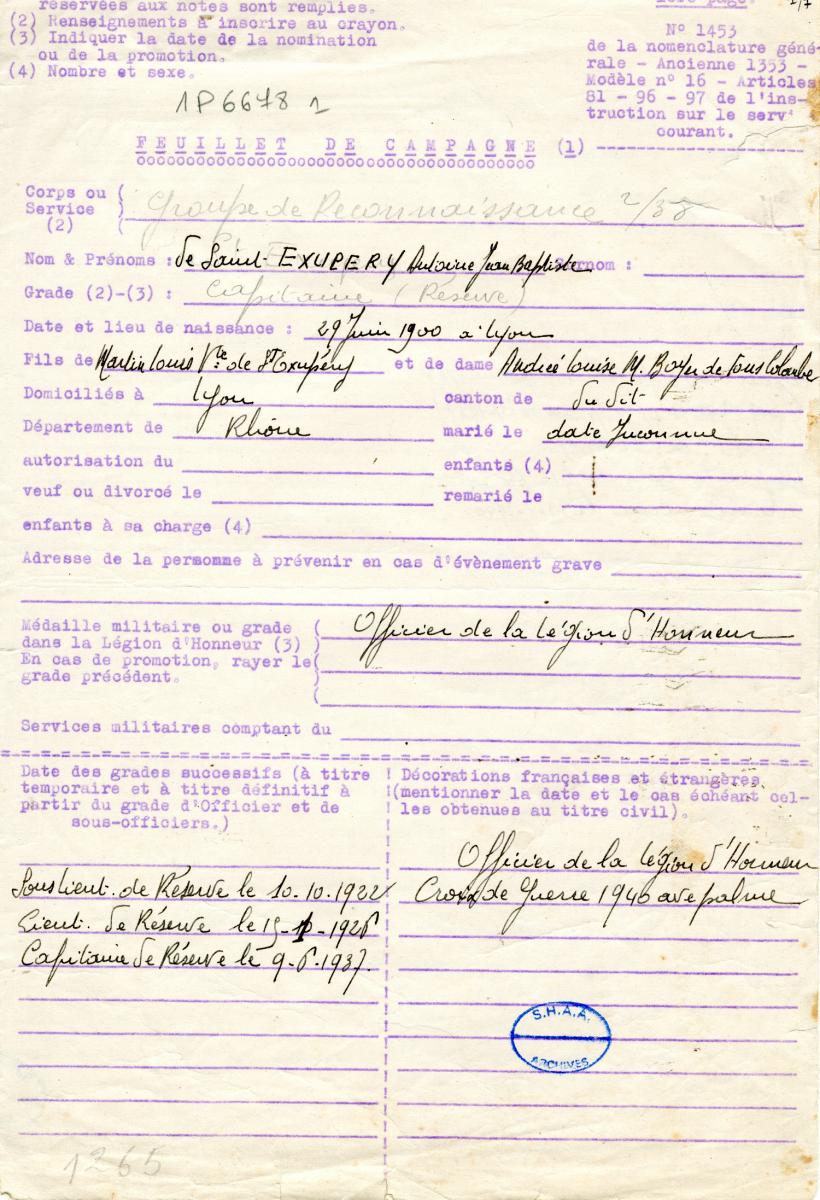 réservées aux notes sont remplies.
(2) Renseignements à inscrire au crayon.
(3) Indiquer la date de la nomination
ou de la promotion.
(4) Nombre et sexe.
1ère page.
N° 1453
de la nomenclature géné-
rale - Ancienne 1353 -
Modèle n° 16 - Articles
81 - 96 - 97 de l'ins-
truction sur le serv
courant.
1P6678 1
FEUILLET DE CAMPAGNE (1)
Corps ou
Service
(2)
Groupe de Reconnaissance 2/33
Nom & Prénoms : de Saint-EXUPERY Antoine Jean Baptiste Surnom :
Grade (2)-(3) : Capitaine (Réserve)
Date et lieu de naissance : 29 Juin 1900 à Lyon
Fils de Martin Louis Vte de St Exupéry et de dame Andrée Louise M. Boyer de Fons Colombe
Domiciliés à Lyon canton de du dit
Département de Rhône marié le date Inconnue
autorisation du enfants (4)
veuf ou divorcé le remarié le
enfants à sa charge (4)
Adresse de la personne à prévenir en cas d'évènement grave
Médaille militaire ou grade
dans la Légion d'Honneur (3)
En cas de promotion, rayer le
grade précédent.
Officier de la Légion d'Honneur
Services militaires comptant du
Date des grades successifs (à titre
temporaire et à titre définitif à
partir du grade d'Officier et de
sous-officiers.)
Sous Lieut. de Réserve le 10.10.1922
Lieut. de Réserve le
Capitaine de Réserve le 9.6.1937.
Décorations françaises et étrangères
(mentionner la date et le cas échéant cel-
les obtenues au titre civil).
Officier de la Légion d'Honneur
Croix de Guerre 1940 ave palme
S.H.A.A.
ARCHIVES
1265